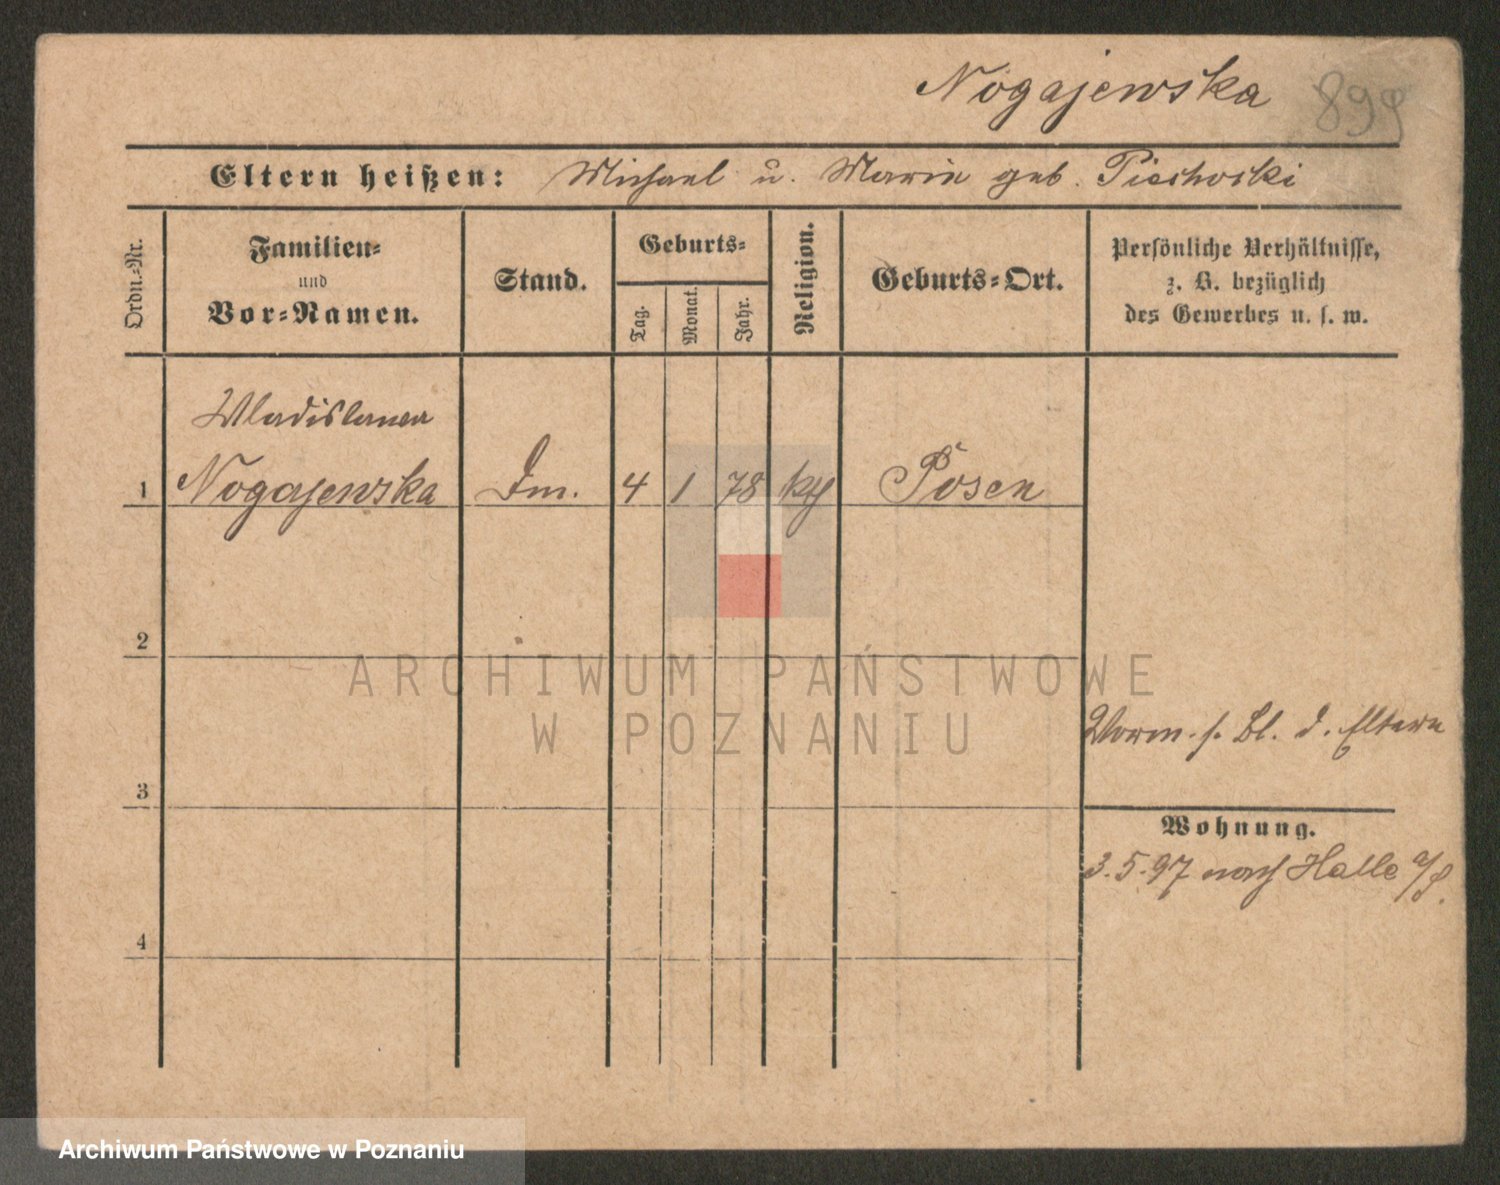 Nogajewska 899
Eltern heißen: Michael u. Marie geb. Piechocki
Ordn.-Nr.
Familien-
und
Vor-Namen.
Stand.
Geburts-
Tag.
Monat.
Jahr.
Religion.
Geburts-Ort.
Persönliche Verhältnisse,
z. B. bezüglich
des Gewerbes u. s. w.
Wladislawa
1 Nogajewska 4 1 78 Posen
2
ARCHIWUM PAŃSTWOWE
W POZNANIU
Vorm. s. Bl. d. Eltern
3
Wohnung.
3.5.97 nach Halle a/S.
4
Archiwum Państwowe w Poznaniu